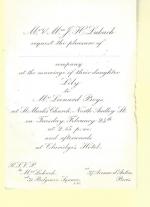 Mr & Mrs J. H. Lubeck
request the pleasure of
company
at the marriage of their daughter
Lily
to
Mr Leonard Beys
at St Mark's Church, North Audley St.
on Tuesday, February 24th
at 2.15 p.m.
and afterwards
at Claridge's Hotel.
R.S.V.P.
Mrs Lubeck
Belgrave Square
Paris.